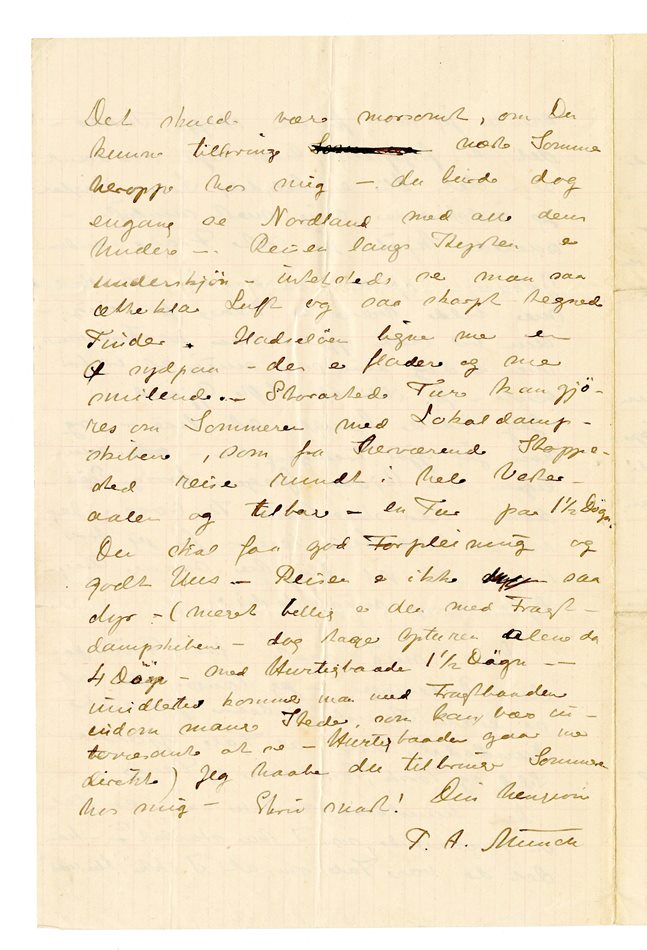 Det skulde være morsomt, om Du
kunne tilbringe næste Somme
heroppe hos mig – du burde dog
engang se Nordland med alle dens
Undere –. Reisen langs Kysten e
underskjøn – intetsteds se man saa
ætherklar Luft og saa skarpt tegnede
Tinder. Hadseløen ligne me en
Ø sydpaa – den e fladere og me
smilende –. Storartede Ture kan gjö-
res om Sommeren med Lokaldamp-
skibene, som fra herværende Stoppe-
sted reise rundt i hele Vester-
aalen og tilbage – en Tur paa 1½ Døgn.
Du skal faa god Forpleining og
godt Hus – Reisen e ikke saa
dyr – (meget billig e den med Fragt-
dampskibene – dog tage opturen alene da
4 Døgn – med Hurtigbaade 1½ Døgn –
imidlertid komme man med Fragtbaadene
indom mange Steder, som kan være in-
teressante at se – Hurtigbaaden gaar me
direkte) Jeg haabe du tilbringe Sommeren
hos mig – Skriv snart! Din hengivne
P. A. Munch